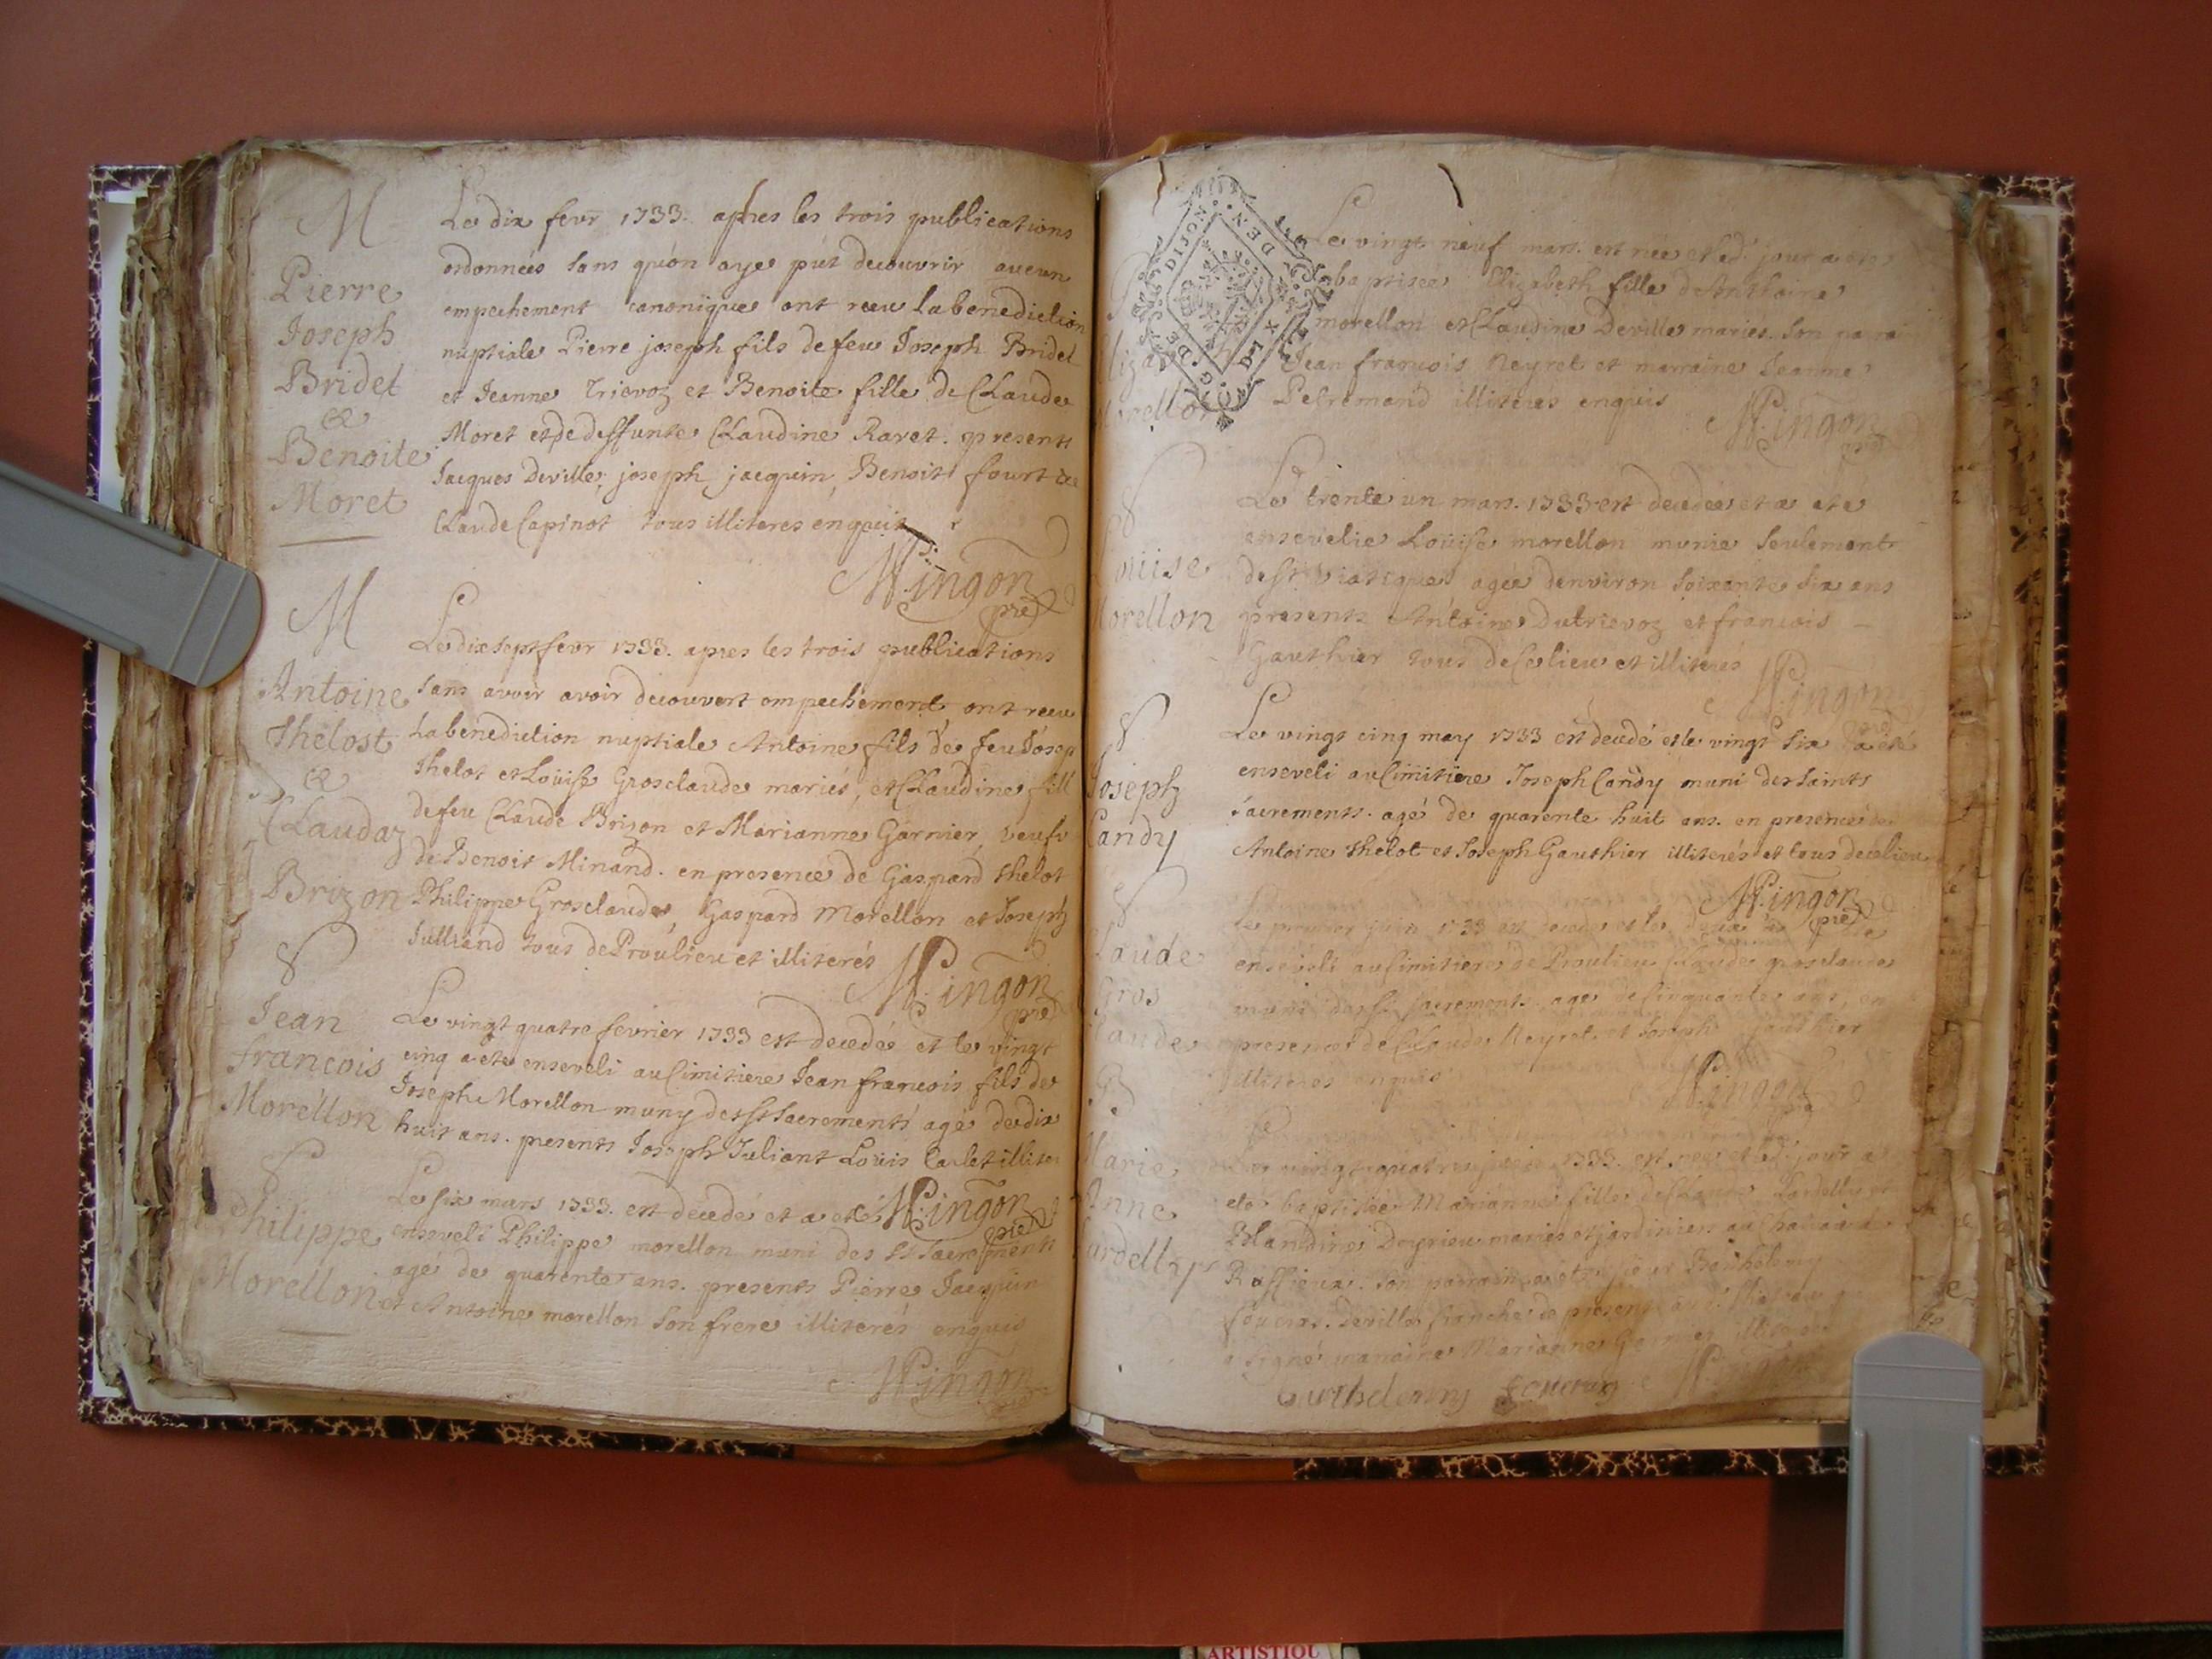 M
Pierre
Joseph
Bridet
&
Benoite
Moret
Le dix fevr 1733. apres les trois publications
ordonnées sans qu'on aye pût decouvrir aucun
empechement canonique ont receu la benediction
nuptiale Pierre joseph fils de feu Joseph Bridet
et Jeanne Trievoz et Benoite fille de Claude
Moret et de deffunte Claudine Ravet. presents
Jacques Deville, joseph jacquin, Benoit fourt &
Claude Capinot tous illiteres enquis
Mingon
pre
M
Antoine
Thelost
&
Claudaz
Brizon
Le dix sept fevr 1733. apres les trois publications
sans avoir avoir decouvert empechement ont receu
la benediction nuptiale Antoine fils de feu Josep
Thelot et Loüise Grosclaude mariés, et Claudine fill
de feu Claude Brizon et Marianne Garnier, veufv
de Benoit Minand. en presence de Gaspard Thelot
Philippe Grosclaude, Gaspard Morellon et Joseph
Julliand tous de Proulieu et illiterés
Mingon
pre
Jean
francois
Morellon
Le vingt quatre fevrier 1733 est decedé et le vingt
cinq a ete enseveli au Cimitiere Jean francois fils de
Joseph Morellon muny des sts Sacrements agé de dix
huit ans. presents Joseph Juliant Loüis Carlet illiter
Mingon
pre
Philippe
Morellon
Le six mars 1733. est decedé et a eté
enseveli Philippe morellon muni des sts Sacrements
agé de quarente ans. presents Pierre Jacquin
et Antoine morellon son frere illiterés enquis
Mingon
pre
Morellon
Le vingt neuf mars. est née et led. jour a ete
baptisée Elizabeth fille d'Anthoine
morellon et Claudine Deville mariés. Son parai
Jean francois Neyret et marraine Jeanne
Petremand illiteres enquis
Mingon
pre
DEN
GDE
ouise
Morellon
Le trente un mars. 1733 est decedée et a ete
ensevelie Loüise morellon munie seulement
du st viatique agée denviron soixante six ans
presents Antoine Dutrievoz et francois
Gauthier tous de ce lieu et illiterés
Mingon
pre
Joseph
Candy
Le vingt cinq may 1733 est decedé et le vingt six a eté
enseveli au Cimitiere Joseph Candy muni des saints
sacrements. agé de quarente huit ans. en presence de
Antoine Thelot et Joseph Gauthier illiterés et tous de ce lieu
Mingon
pre
Claude
Gros
laude
Le premier juin 1733 est decedé et le deux
enseveli au Cimitiere de Proulieu Claude grosclaude
muni des st sacrements. agé de Cinquante ans, en
presence de Claude Neyret et Joseph gauthier
illiteres enquis
Mingon
B
Marie
Anne
Le vingt quatre 1733. est née et led. jour a
ete baptisée Marianne fille de Claude
Blandine Deyrieu mariés et jardinier au
Son parrain a ete sieur Barthelemy
a signé marraine Marianne
Barthelemy
Mingon
ARTISTIQU